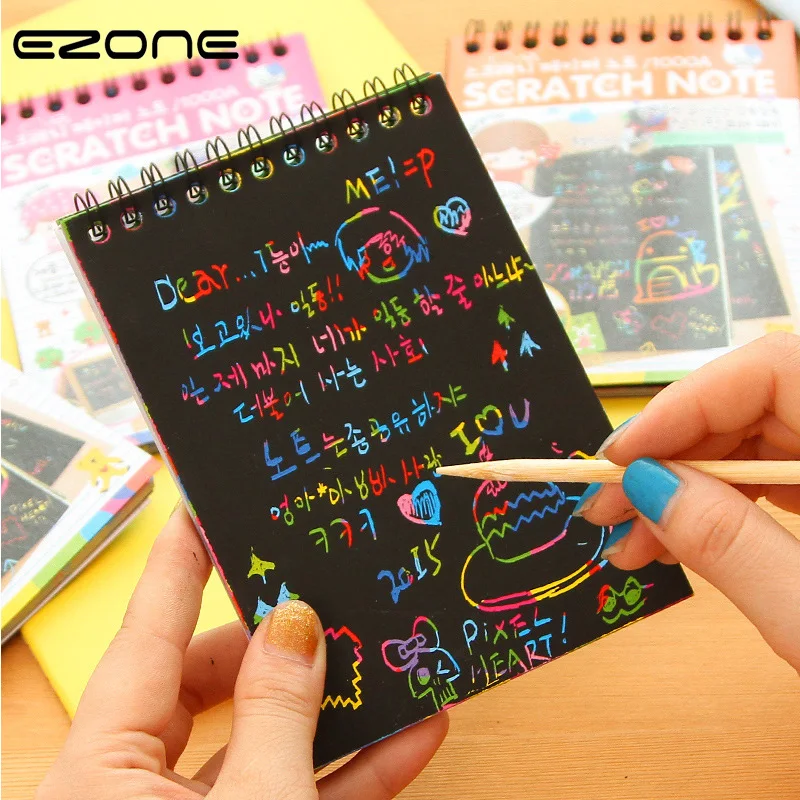 EZONE
SCRATCH NOTE
/1000A
SCRATCH NOTE
/1000A
ME! =P
Dear...
보고있나 일동!!
언제까지 네가 일동할 줄 아느냐~
더불어 사는 사회
노트는 좀 공유하자
I♡U
사랑
ㅋㅋㅋ
2015
PIXEL
HEART!